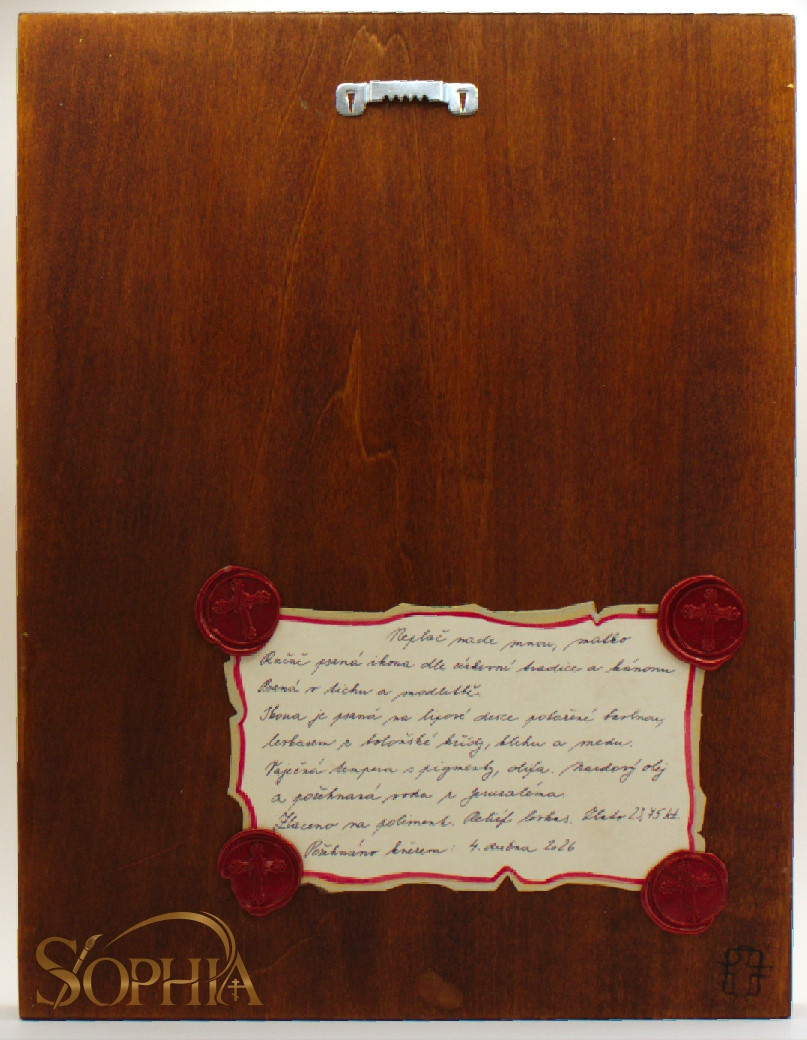 Neplač nade mnou, matko
Ručně psaná ikona dle církevní tradice a kánonu
Psaná v tichu a modlitbě.
Ikona je psaná na lipové desce potažené bavlnou,
levkasem z boloňské křídy, klihu a medu.
Vaječná tempera s pigmenty, olifa. Nardový olej
a požehnaná voda z Jeruzaléma.
Zlaceno na poliment. Reliéf levkas. Zlato 23,75 kt.
Požehnáno knězem: 4. dubna 2026
SOPHIA